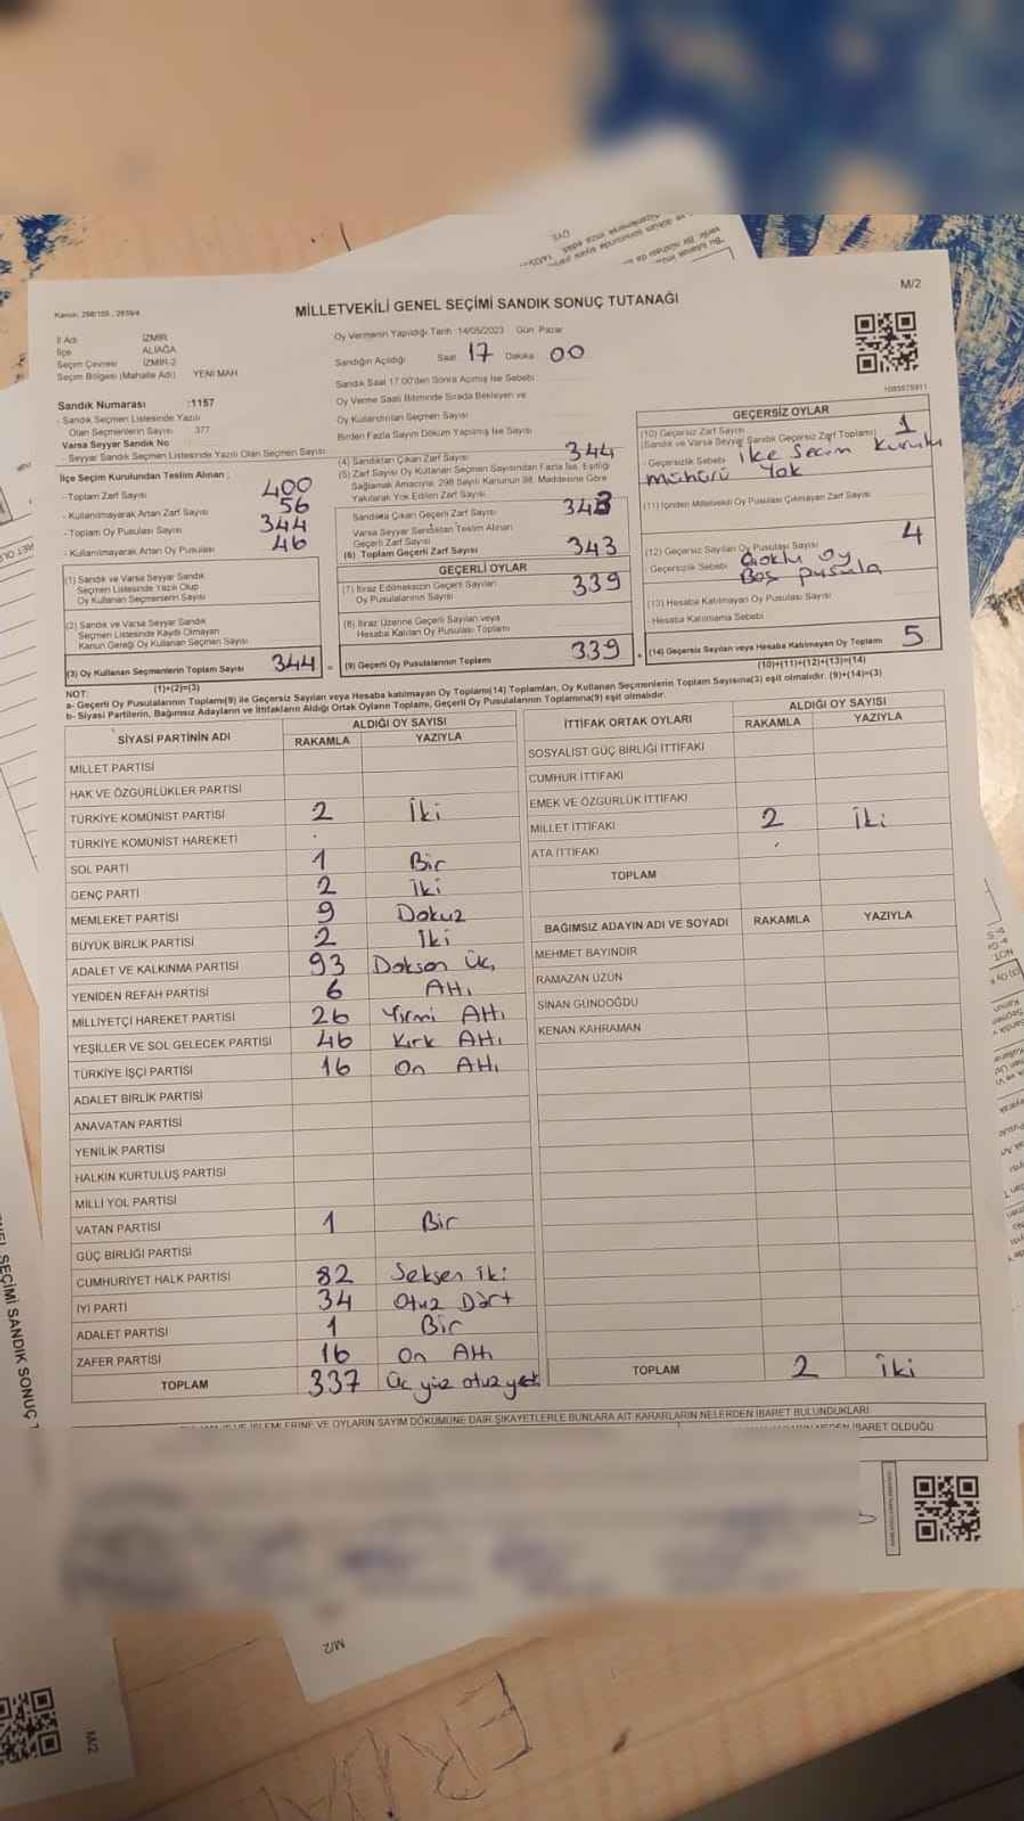 M/2
MİLLETVEKİLİ GENEL SEÇİMİ SANDIK SONUÇ TUTANAĞI
İl Adı İZMİR
İlçe ALİAĞA
Seçim Çevresi İZMİR-2
Seçim Bölgesi (Mahalle Adı) YENİ MAH
Oy Vermenin Yapıldığı Tarih :14/05/2023 Gün Pazar
Sandığın Açıldığı Saat 17 Dakika 00
Sandık Saat 17:00'den Sonra Açılmış İse Sebebi
Oy Verme Saati Bitiminde Sırada Bekleyen ve
Oy Kullandırılan Seçmen Sayısı
Birden Fazla Sayım Döküm Yapılmış İse Sayısı
Sandık Numarası :1157
- Sandık Seçmen Listesinde Yazılı
Olan Seçmenlerin Sayısı 377
Varsa Seyyar Sandık No
- Seyyar Sandık Seçmen Listesinde Yazılı Olan Seçmen Sayısı
İlçe Seçim Kurulundan Teslim Alınan ;
- Toplam Zarf Sayısı 400
- Kullanılmayarak Artan Zarf Sayısı 56
- Toplam Oy Pusulası Sayısı 344
- Kullanılmayarak Artan Oy Pusulası 46
(1) Sandık ve Varsa Seyyar Sandık
Seçmen Listesinde Yazılı Olup
Oy Kullanan Seçmenlerin Sayısı
(2) Sandık ve Varsa Seyyar Sandık
Seçmen Listesinde Kayıtlı Olmayan
Kanun Gereği Oy Kullanan Seçmen Sayısı
(3) Oy Kullanan Seçmenlerin Toplam Sayısı 344
(1)+(2)=(3)
(4) Sandıktan Çıkan Zarf Sayısı 344
(5) Zarf Sayısı Oy Kullanan Seçmen Sayısından Fazla İse, Eşitliği
Sağlamak Amacıyla, 298 Sayılı Kanunun 98. Maddesine Göre
Yakılarak Yok Edilen Zarf Sayısı
Sandıkta Çıkan Geçerli Zarf Sayısı 343
Varsa Seyyar Sandıktan Teslim Alınan
Geçerli Zarf Sayısı
(6) Toplam Geçerli Zarf Sayısı 343
GEÇERLİ OYLAR
(7) İtiraz Edilmeksizin Geçerli Sayılan
Oy Pusulalarının Sayısı 339
(8) İtiraz Üzerine Geçerli Sayılan veya
Hesaba Katılan Oy Pusulası Toplamı
(9) Geçerli Oy Pusulalarının Toplamı 339
GEÇERSİZ OYLAR
(10) Geçersiz Zarf Sayısı 1
(Sandık ve Varsa Seyyar Sandık Geçersiz Zarf Toplamı)
- Geçersizlik Sebebi İlçe Secim Kurulu
mühürü Yok
(11) İçinden Milletvekili Oy Pusulası Çıkmayan Zarf Sayısı
(12) Geçersiz Sayılan Oy Pusulası Sayısı 4
- Geçersizlik Sebebi Çoklu oy
Boş pusula
(13) Hesaba Katılmayan Oy Pusulası Sayısı
- Hesaba Katılmama Sebebi
(14) Geçersiz Sayılan veya Hesaba Katılmayan Oy Toplamı 5
(10)+(11)+(12)+(13)=(14)
NOT:
a- Geçerli Oy Pusulalarının Toplamı(9) ile Geçersiz Sayılan veya Hesaba katılmayan Oy Toplamı(14) Toplamları, Oy Kullanan Seçmenlerin Toplam Sayısına(3) eşit olmalıdır. (9)+(14)=(3)
b- Siyasi Partilerin, Bağımsız Adayların ve İttifakların Aldığı Ortak Oyların Toplamı, Geçerli Oy Pusulalarının Toplamına(9) eşit olmalıdır.
SİYASİ PARTİNİN ADI ALDIĞI OY SAYISI
RAKAMLA YAZIYLA
MİLLET PARTİSİ
HAK VE ÖZGÜRLÜKLER PARTİSİ
TÜRKİYE KOMÜNİST PARTİSİ 2 İki
TÜRKİYE KOMÜNİST HAREKETİ
SOL PARTİ 1 Bir
GENÇ PARTİ 2 İki
MEMLEKET PARTİSİ 9 Dokuz
BÜYÜK BİRLİK PARTİSİ 2 İki
ADALET VE KALKINMA PARTİSİ 93 Doksan Üç
YENİDEN REFAH PARTİSİ 6 Altı
MİLLİYETÇİ HAREKET PARTİSİ 26 Yirmi Altı
YEŞİLLER VE SOL GELECEK PARTİSİ 46 Kırk Altı
TÜRKİYE İŞÇİ PARTİSİ 16 On Altı
ADALET BİRLİK PARTİSİ
ANAVATAN PARTİSİ
YENİLİK PARTİSİ
HALKIN KURTULUŞ PARTİSİ
MİLLİ YOL PARTİSİ
VATAN PARTİSİ 1 Bir
GÜÇ BİRLİĞİ PARTİSİ
CUMHURİYET HALK PARTİSİ 82 Seksen iki
İYİ PARTİ 34 Otuz Dört
ADALET PARTİSİ 1 Bir
ZAFER PARTİSİ 16 On Altı
TOPLAM 337 Üç yüz otuz yedi
İTTİFAK ORTAK OYLARI ALDIĞI OY SAYISI
RAKAMLA YAZIYLA
SOSYALİST GÜÇ BİRLİĞİ İTTİFAKI
CUMHUR İTTİFAKI
EMEK VE ÖZGÜRLÜK İTTİFAKI
MİLLET İTTİFAKI 2 İki
ATA İTTİFAKI
TOPLAM
BAĞIMSIZ ADAYIN ADI VE SOYADI RAKAMLA YAZIYLA
MEHMET BAYINDIR
RAMAZAN UZUN
SİNAN GÜNDOĞDU
KENAN KAHRAMAN
TOPLAM 2 İki
VE OYLARIN SAYIM DÖKÜMÜNE DAİR ŞİKAYETLERLE BUNLARA AİT KARARLARIN NELERDEN İBARET BULUNDUKLARI
İBARET OLDUĞU
M/2
M/2